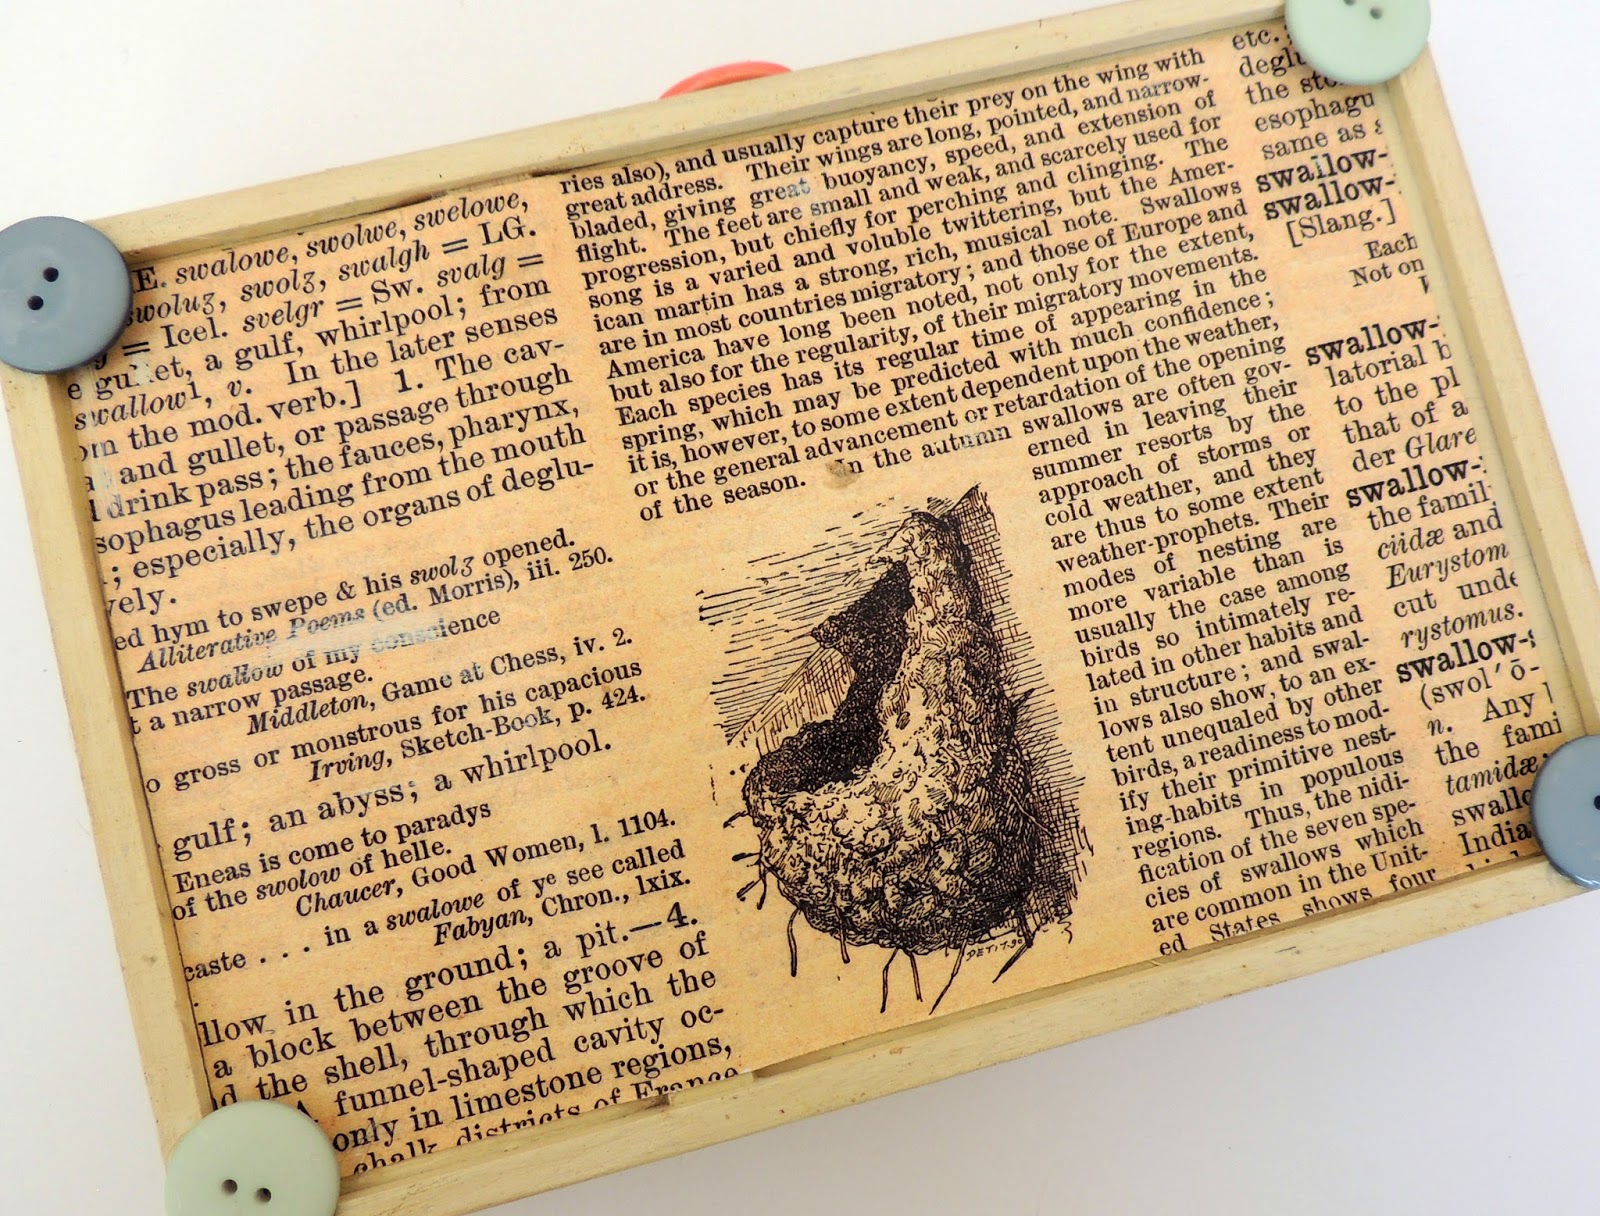 E. swalowe, swolwe, swelowe,
swoluʒ, swolʒ, swalgh = LG.
= Icel. svelgr = Sw. svalg =
e gullet, a gulf, whirlpool; from
swallow¹, v. In the later senses
om the mod. verb.] 1. The cav-
and gullet, or passage through
drink pass; the fauces, pharynx,
sophagus leading from the mouth
; especially, the organs of deglu-
vely.
ed hym to swepe & his swolʒ opened.
Alliterative Poems (ed. Morris), iii. 250.
The swallow of my conscience
t a narrow passage.
Middleton, Game at Chess, iv. 2.
o gross or monstrous for his capacious
Irving, Sketch-Book, p. 424.
gulf; an abyss; a whirlpool.
Eneas is come to paradys
of the swolow of helle.
Chaucer, Good Women, l. 1104.
caste . . . in a swalowe of ye see called
Fabyan, Chron., lxix.
llow in the ground; a pit.—4.
a block between the groove of
d the shell, through which the
A funnel-shaped cavity oc-
only in limestone regions,
chalk districts of France
ries also), and usually capture their prey on the wing with
great address. Their wings are long, pointed, and narrow-
bladed, giving great buoyancy, speed, and extension of
flight. The feet are small and weak, and scarcely used for
progression, but chiefly for perching and clinging. The
song is a varied and voluble twittering, but the Amer-
ican martin has a strong, rich, musical note. Swallows
are in most countries migratory; and those of Europe and
America have long been noted, not only for the extent,
but also for the regularity, of their migratory movements.
Each species has its regular time of appearing in the
spring, which may be predicted with much confidence;
it is, however, to some extent dependent upon the weather,
or the general advancement or retardation of the opening
of the season. In the autumn swallows are often gov-
erned in leaving their
summer resorts by the
approach of storms or
cold weather, and they
are thus to some extent
weather-prophets. Their
modes of nesting are
more variable than is
usually the case among
birds so intimately re-
lated in other habits and
in structure; and swal-
lows also show, to an ex-
tent unequaled by other
birds, a readiness to mod-
ify their primitive nest-
ing-habits in populous
regions. Thus, the nidi-
fication of the seven spe-
cies of swallows which
are common in the Unit-
ed States shows four
etc.;
deglu
the sto
esophagu
same as
swallow-
swallow-
[Slang.]
Each
Not on
swallow-
latorial b
to the pl
that of a
der Glare
swallow-
the famil
ciidæ and
Eurystom
cut unde
rystomus.
swallow-
(swol′ō-
n. Any
the fami
tamidæ;
swallo
India